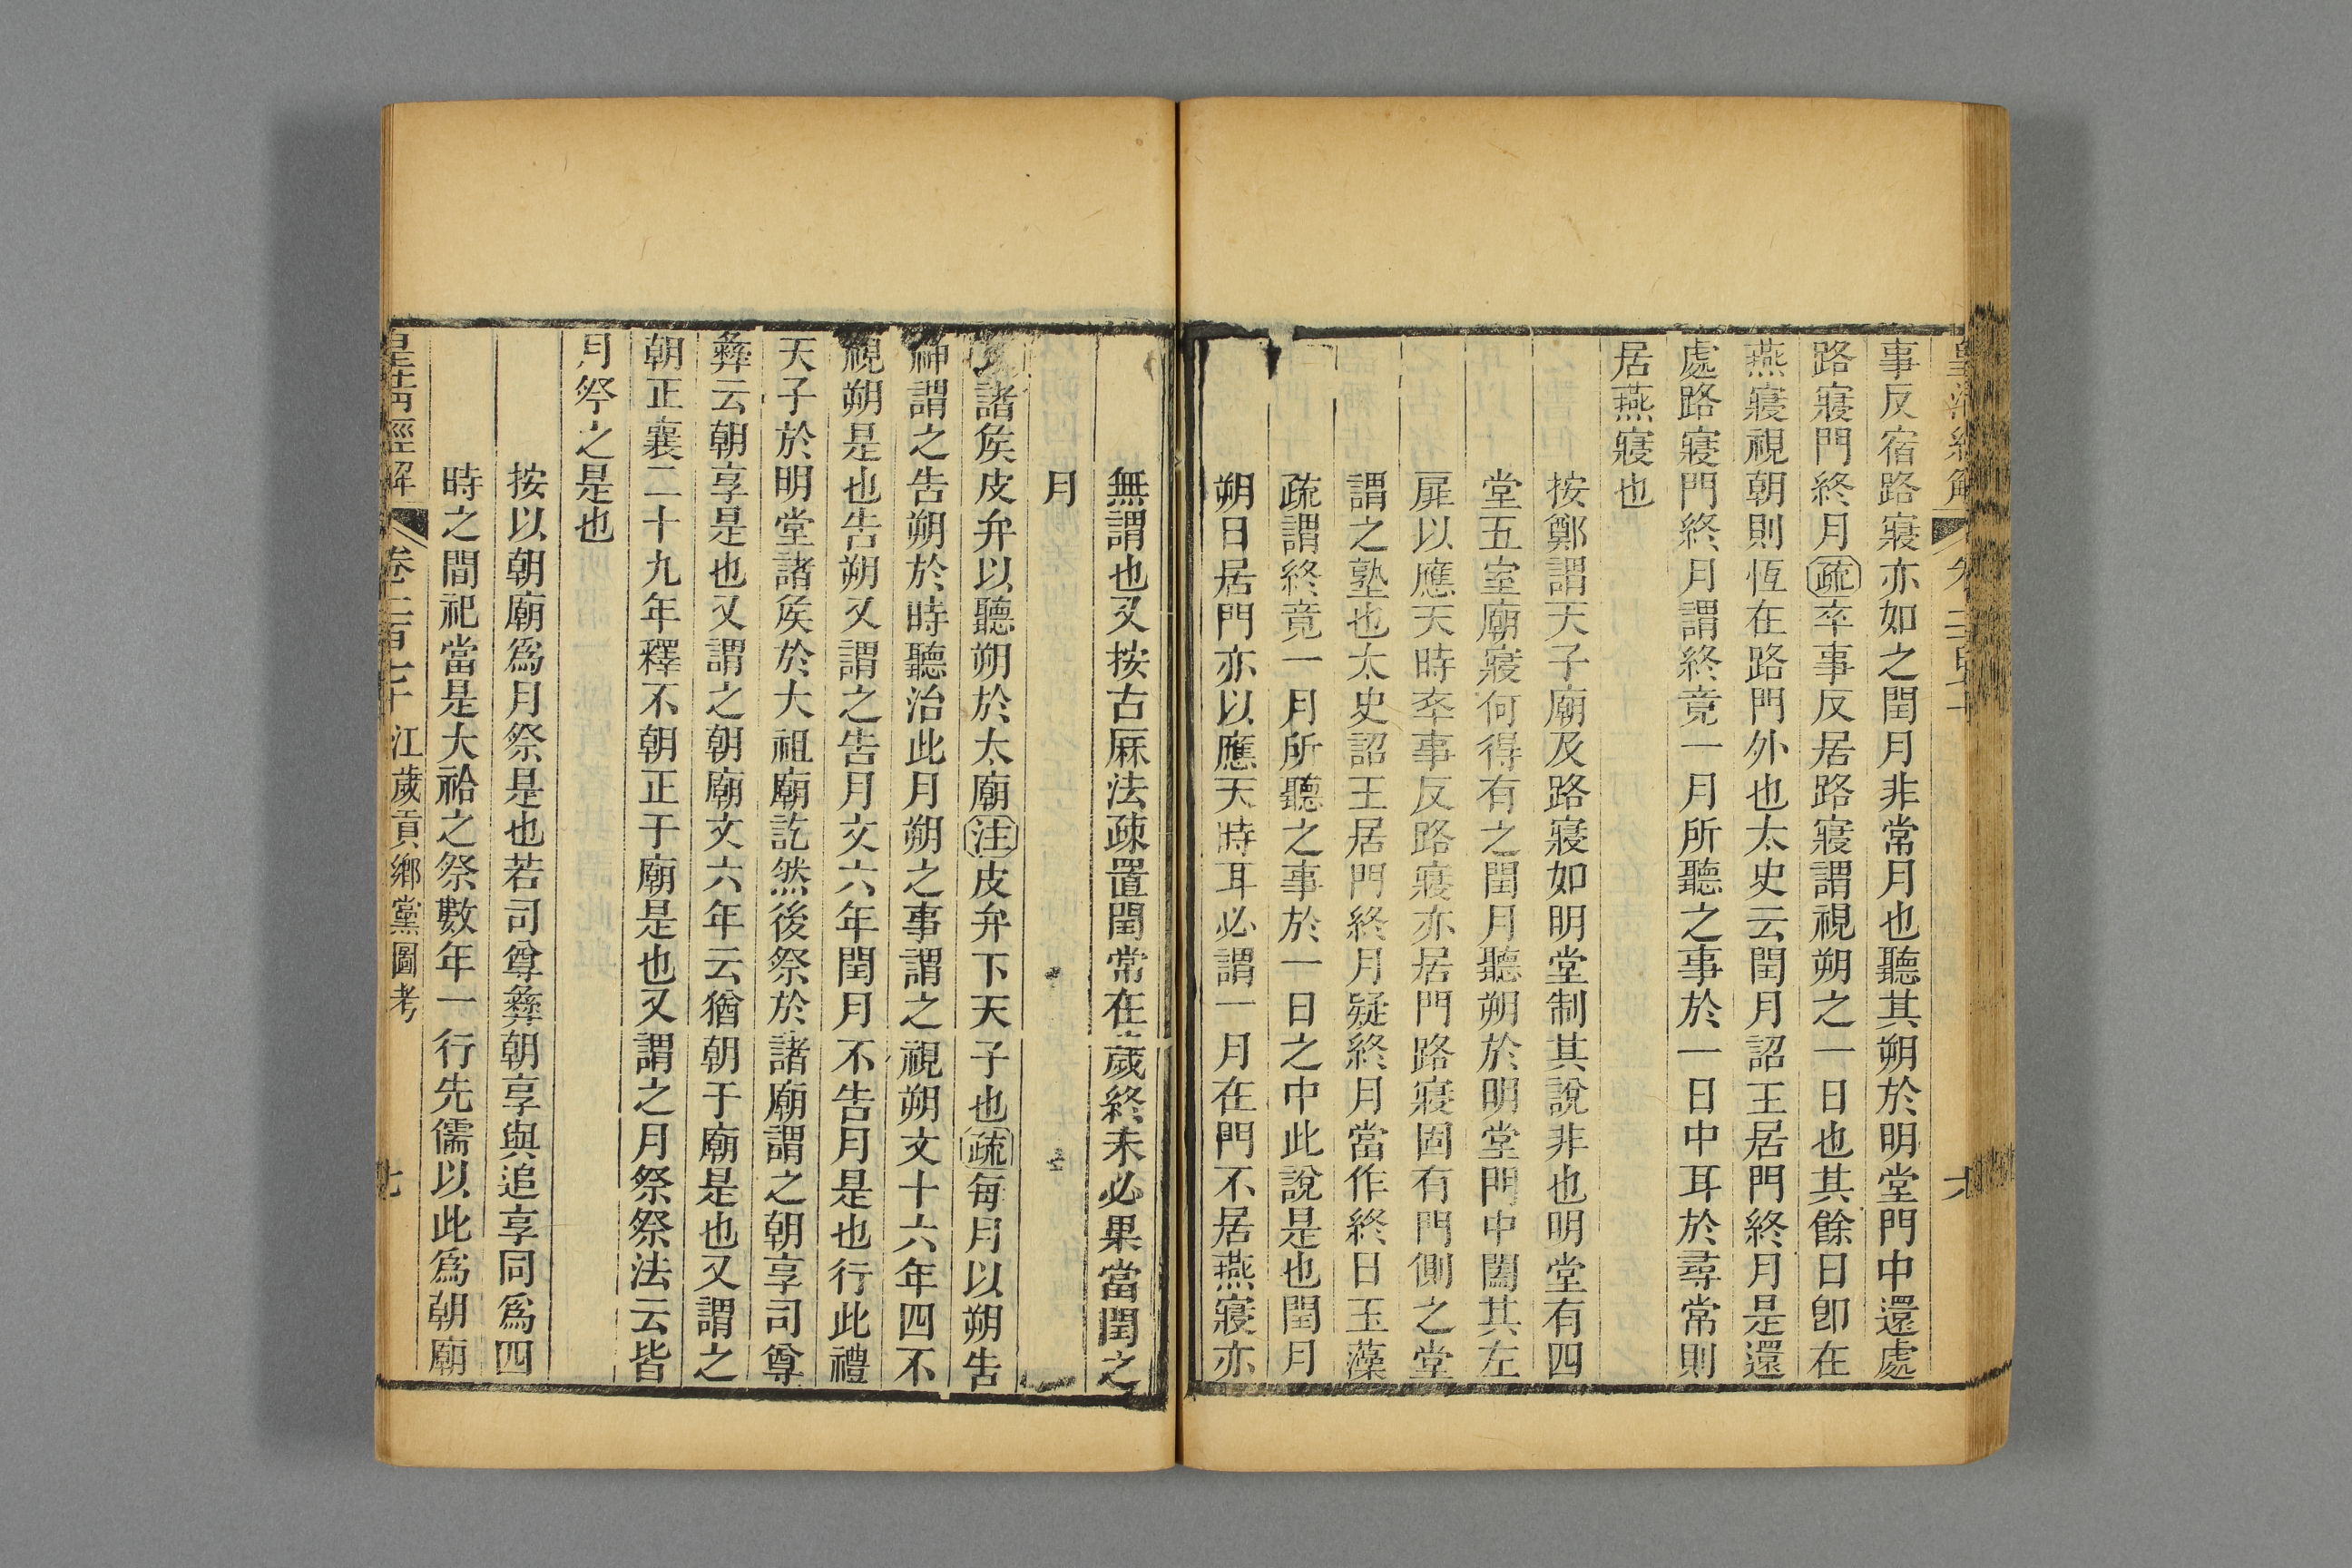 事反宿路寢亦如之閏月非常月也聽其朔於明堂門中還處
路寢門終月疏卒事反居路寢謂視朔之一日也其餘日卽在
燕寢視朝則恆在路門外也太史云閏月詔王居門終月是還
處路寢門終月謂終竟一月所聽之事於一日中耳於尋常則
居燕寢也
按鄭謂天子廟及路寢如明堂制其說非也明堂有四
堂五室廟寢何得有之閏月聽朔於明堂門中闔其左
扉以應天時卒事反路寢亦居門路寢固有門側之堂
謂之塾也太史詔王居門終月疑終月當作終日玉藻
疏謂終竟一月所聽之事於一日之中此說是也閏月
朔日居門亦以應天時耳必謂一月在門不居燕寢亦
無謂也又按古厤法疎置閏常在歲終未必果當閏之
月
諸矦皮弁以聽朔於太廟注皮弁下天子也疏每月以朔告
神謂之告朔於時聽治此月朔之事謂之視朔文十六年四不
視朔是也告朔又謂之告月文六年閏月不告月是也行此禮
天子於明堂諸矦於大祖廟訖然後祭於諸廟謂之朝享司尊
彝云朝享是也又謂之朝廟文六年云猶朝于廟是也又謂之
朝正襄二十九年釋不朝正于廟是也又謂之月祭祭法云皆
月祭之是也
按以朝廟爲月祭是也若司尊彝朝享與追享同爲四
時之間祀當是大祫之祭數年一行先儒以此爲朝廟
皇淸經解 卷二百七十 江歲貢鄉黨圖考 七